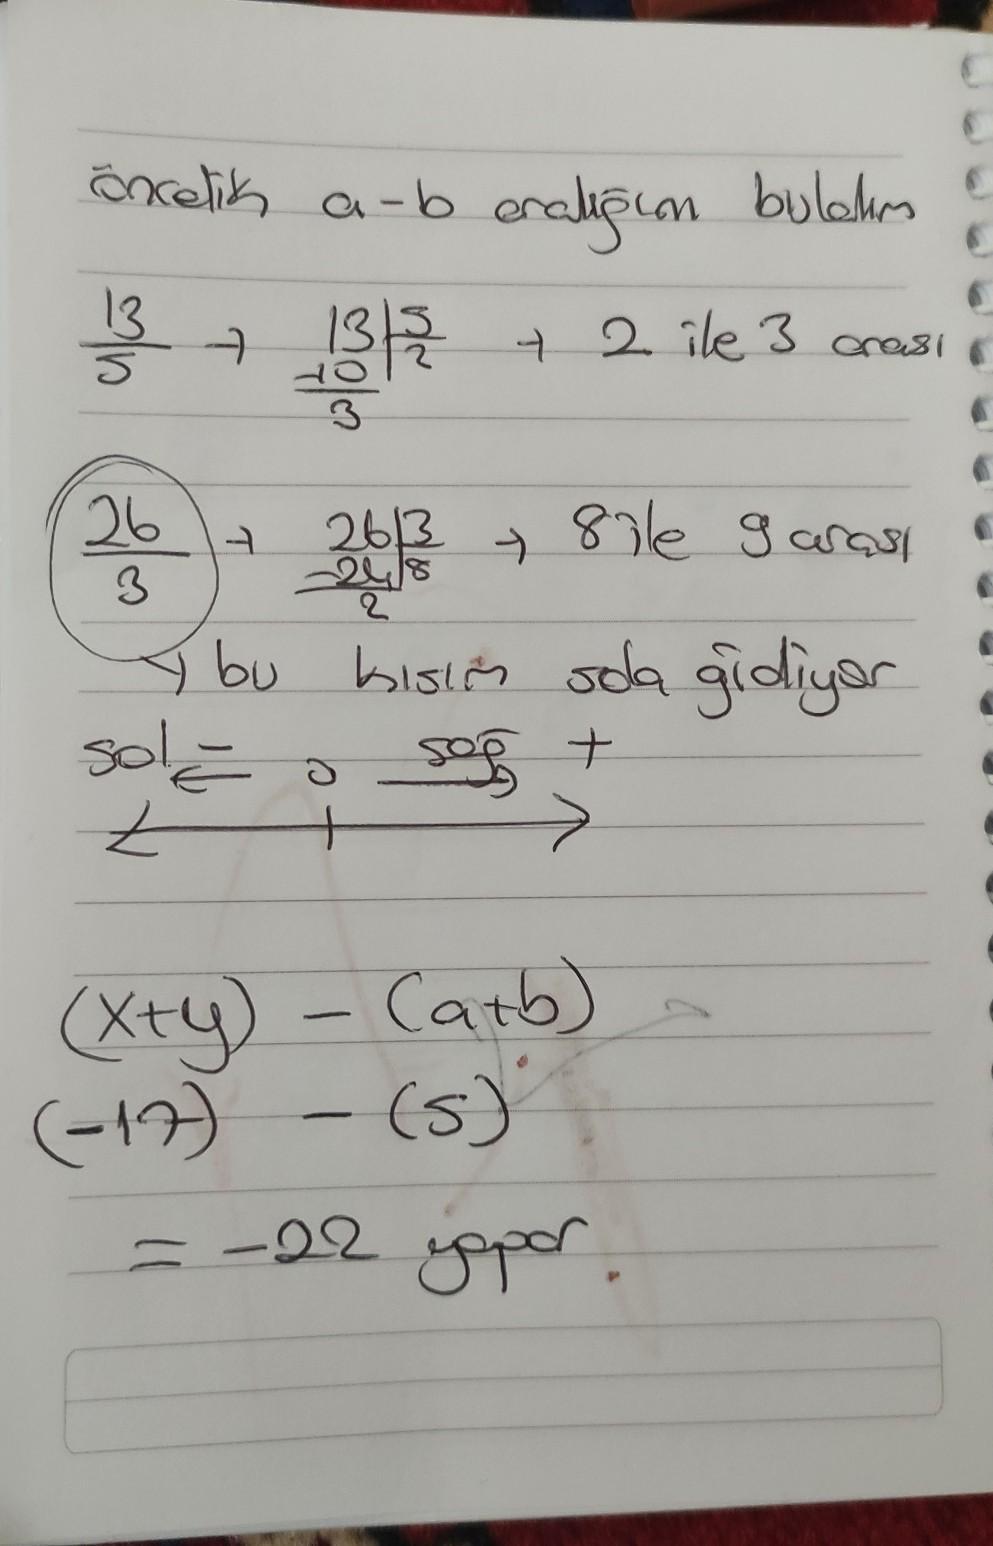 öncelik a-b aralığını bulalım
13/5 → 13|5 -10 2 3 → 2 ile 3 arası
26/3 → 26|3 -24 8 2 → 8 ile 9 arası
→ bu kısım sola gidiyor
sol - ← 0 sağ → +
(x+y) - (a+b)
(-17) - (5)
= -22 yapar